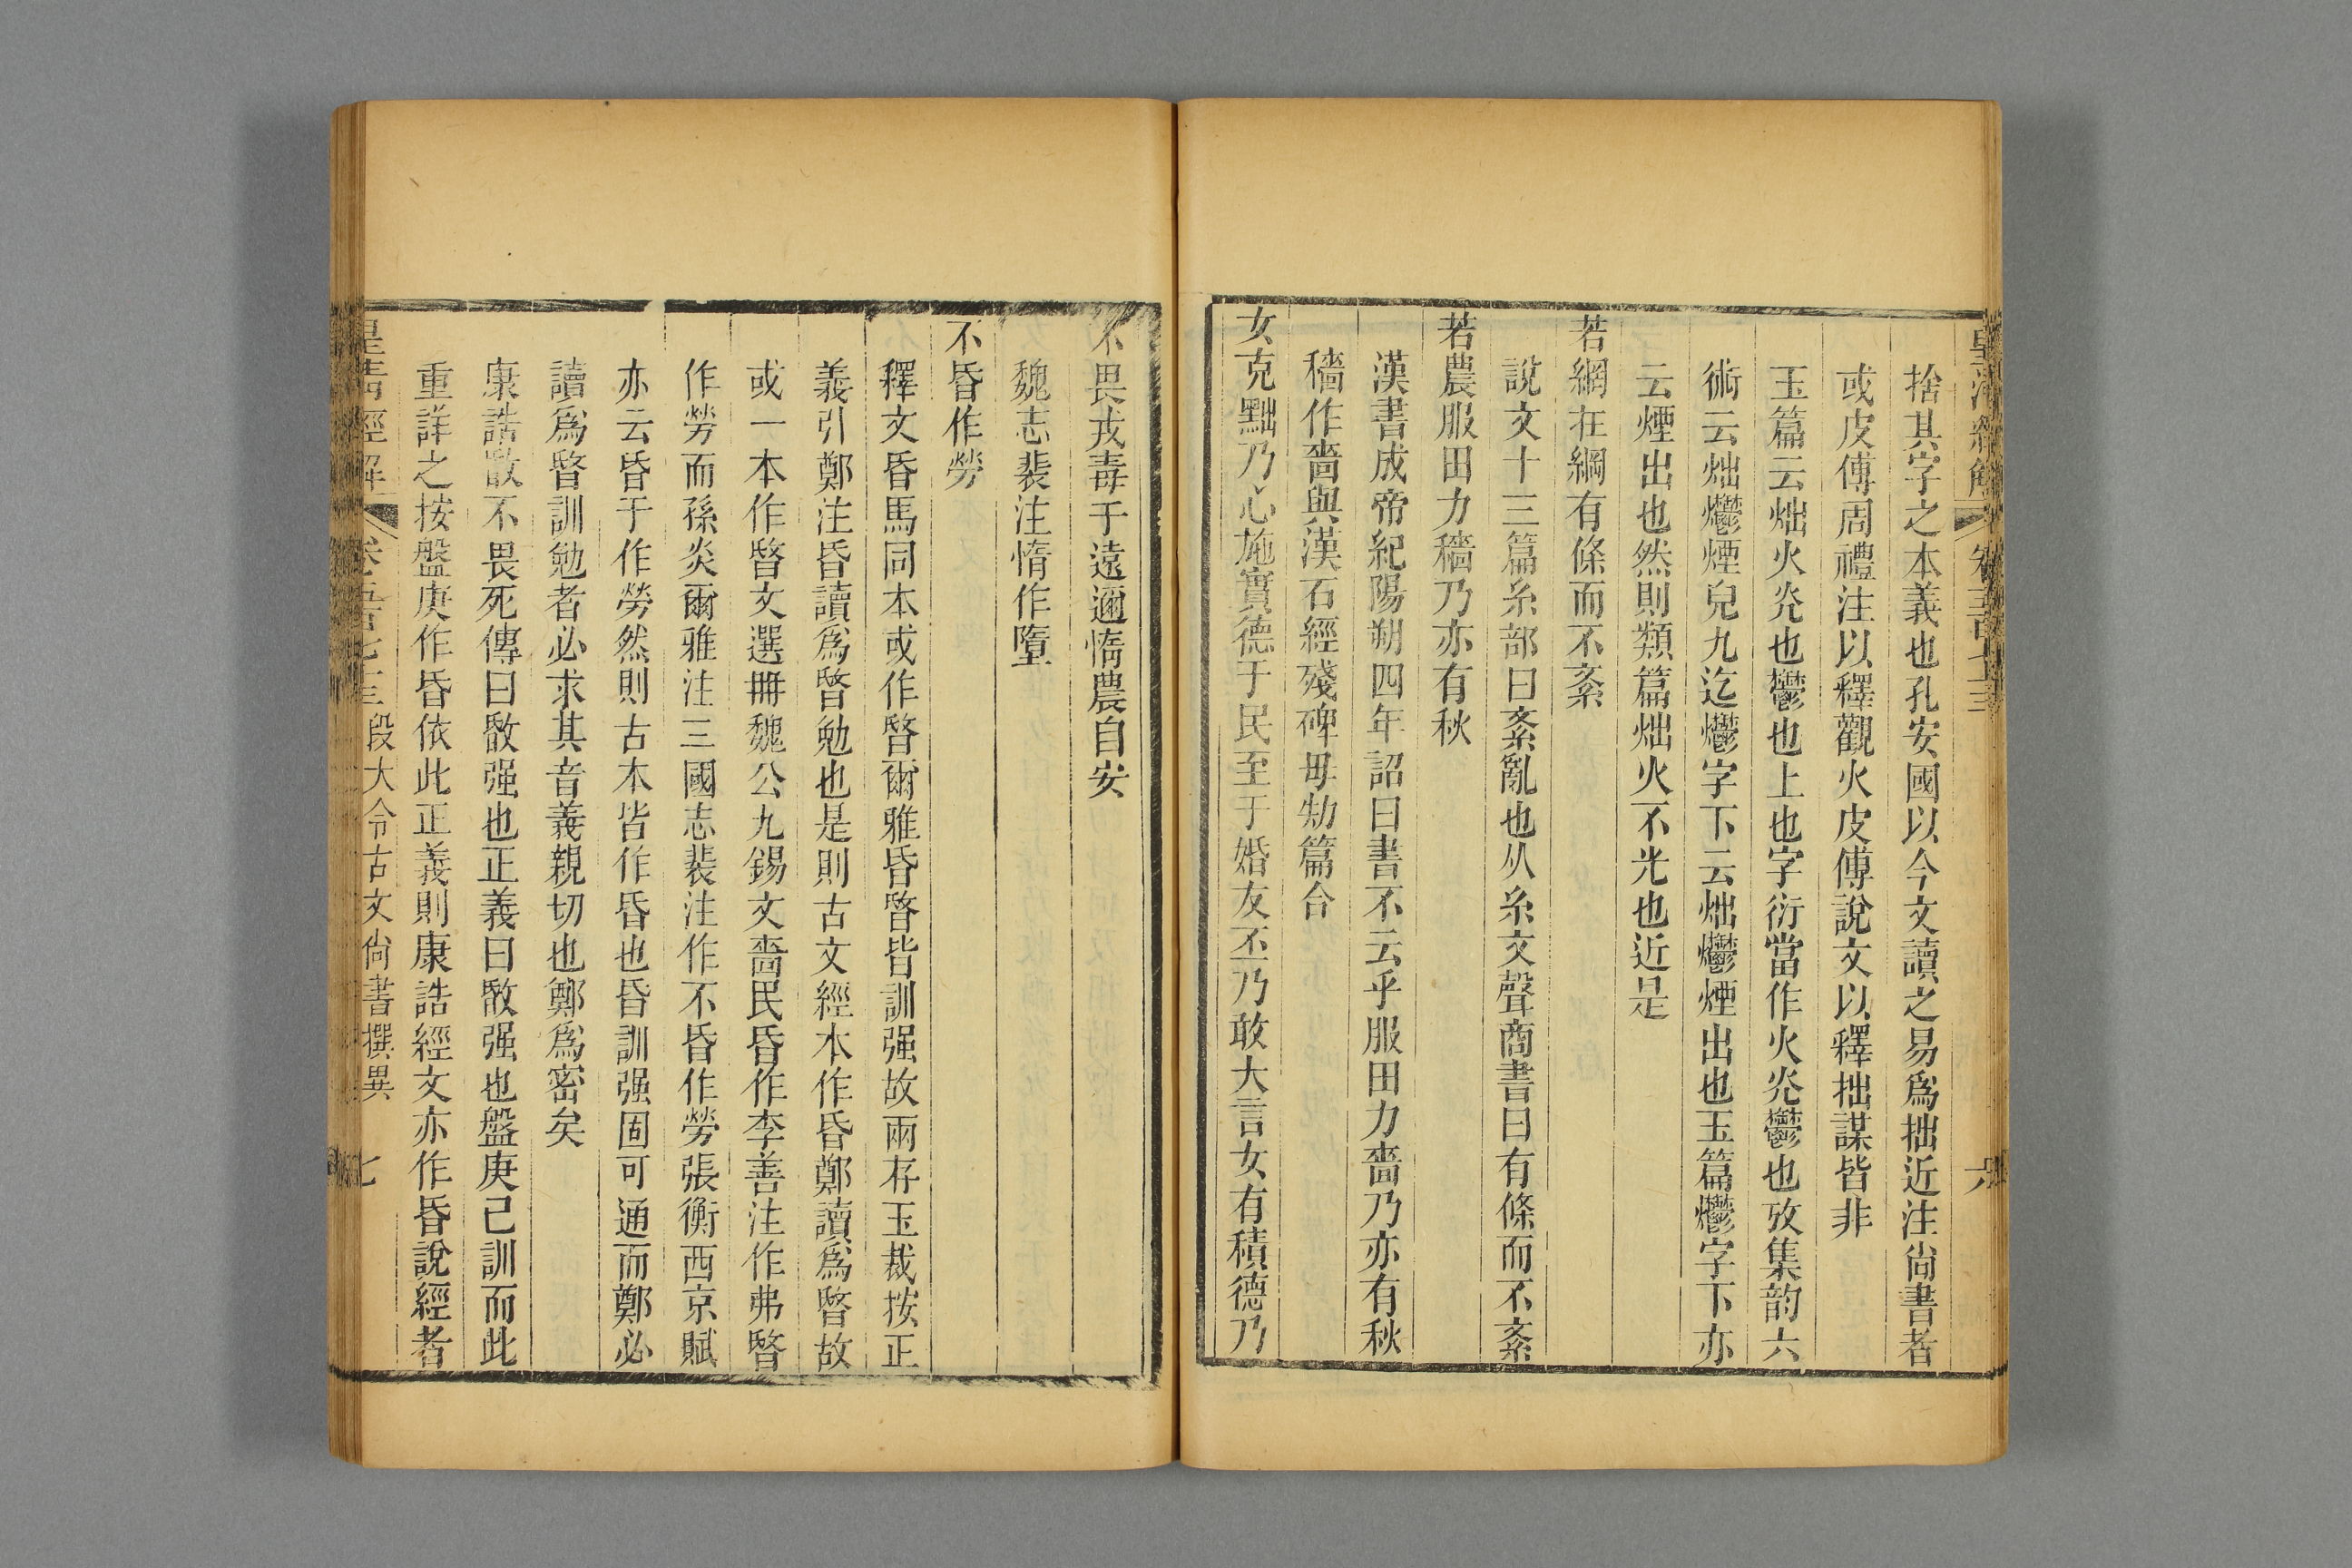 皇清經解 卷五百七十三 六
捨其字之本義也孔安國以今文讀之易爲拙近注尚書者
或皮傅周禮注以釋觀火皮傅說文以釋拙謀皆非
玉篇云炪火㷔也鬱也上也字衍當作火㷔鬱也攷集韵六
術云炪爩煙皃九迄爩字下云炪爩煙出也玉篇爩字下亦
云煙出也然則類篇炪火不光也近是
若網在綱有條而不紊
說文十三篇糸部曰紊亂也从糸文聲商書曰有條而不紊
若農服田力穡乃亦有秋
漢書成帝紀陽朔四年詔曰書不云乎服田力嗇乃亦有秋
穡作嗇與漢石經殘碑毋劮篇合
女克黜乃心施實德于民至于婚友丕乃敢大言女有積德乃
不畏戎毒于遠邇惰農自安
魏志裴注惰作墮
不昏作勞
釋文昏馬同本或作暋爾雅昏暋皆訓强故兩存玉裁按正
義引鄭注昏讀爲暋勉也是則古文經本作昏鄭讀爲暋故
或一本作暋文選冊魏公九錫文嗇民昏作李善注作弗暋
作勞而孫炎爾雅注三國志裴注作不昏作勞張衡西京賦
亦云昏于作勞然則古本皆作昏也昏訓强固可通而鄭必
讀爲暋訓勉者必求其音義親切也鄭爲密矣
康誥敯不畏死傳曰敯强也正義曰敯强也盤庚已訓而此
重詳之按盤庚作昏依此正義則康誥經文亦作昏說經者
皇清經解 卷五百七十三 段大令古文尚書撰異 七